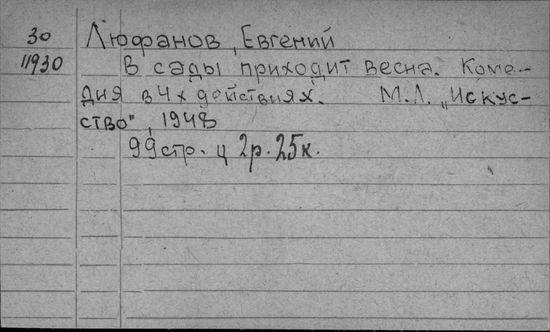 30 Люфанов, Евгений
11930 В сады приходит весна. Коме-
дия в 4х действиях. М.Л. „Искус-
ство", 1948
99стр. ц 2р. 25к.